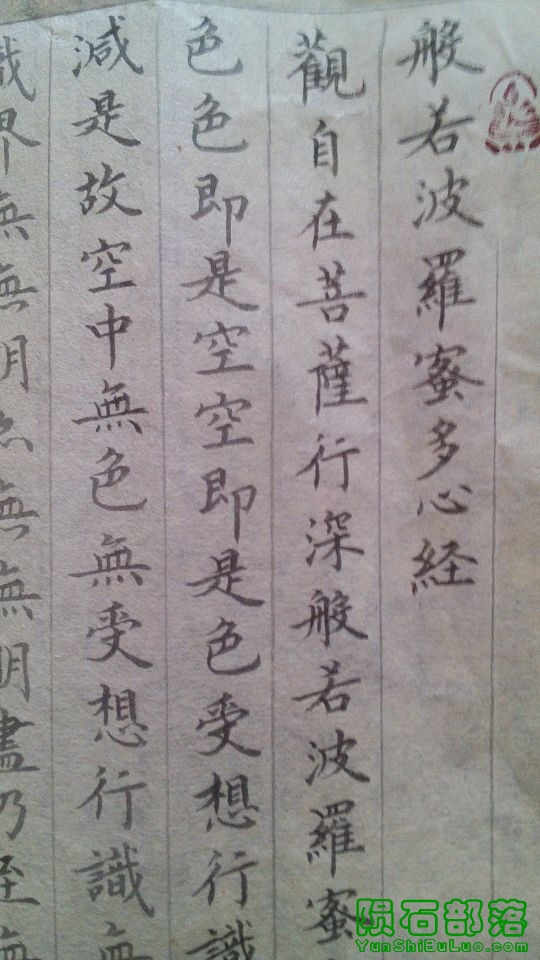 般若波羅蜜多心経
觀自在菩薩行深般若波羅蜜
色色即是空空即是色受想行識
減是故空中無色無受想行識無
界無無明亦無無明盡乃至無
陨石部落
YunShiBuLuo.com